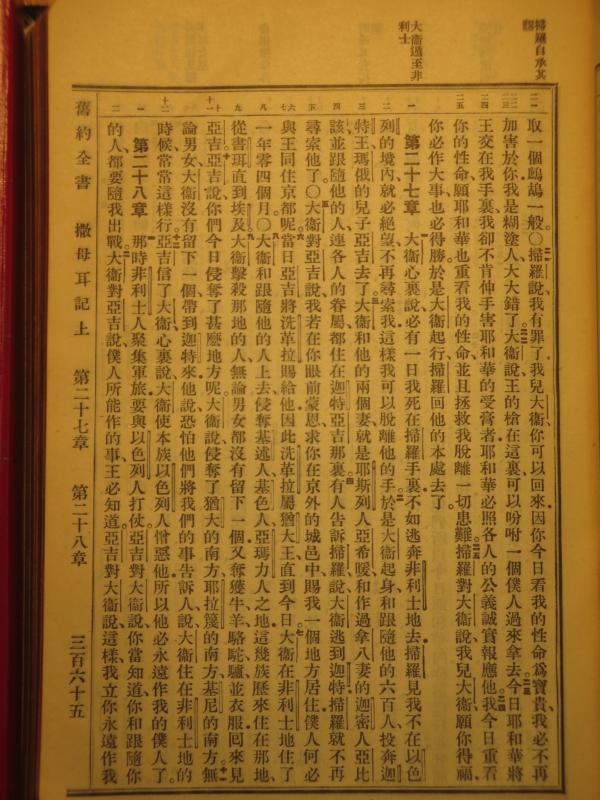 掃羅自承其
大衛遁至非
利士
取一個鷓鴣一般〇掃羅說我有罪了我兒大衛你可以回來因你今日看我的性命爲寶貴我必不再
加害於你我是糊塗人大大錯了大衛說王的槍在這裏可以吩咐一個僕人過來拿去今日耶和華將
王交在我手裏我卻不肯伸手害耶和華的受膏者耶和華必照各人的公義誠實報應他我今日重看
你的性命願耶和華也重看我的性命並且拯救我脫離一切患難掃羅對大衛說我兒大衛願你得福
你必作大事也必得勝於是大衛起行掃羅回他的本處去了
第二十七章 大衛心裏說必有一日我死在掃羅手裏不如逃奔非利士地去掃羅見我不在以色
列的境內就必絕望不再尋索我這樣我可以脫離他的手於是大衛起身和跟隨他的六百人投奔迦
特王瑪俄的兒子亞吉去了大衛和他的兩個妻就是耶斯列人亞希暖和作過拿八妻的迦密人亞比
該並跟隨他的人連各人的眷屬都住在迦特亞吉那裏有人告訴掃羅說大衛逃到迦特掃羅就不再
尋索他了〇大衛對亞吉說我若在你眼前蒙恩求你在京外的城邑中賜我一個地方居住僕人何必
與王同住京都呢當日亞吉將洗革拉賜給他因此洗革拉屬猶大王直到今日大衛在非利士地住了
一年零四個月〇大衛和跟隨他的人上去侵奪基述人基色人亞瑪力人之地這幾族歷來住在那地
從書珥直到埃及大衛擊殺那地的人無論男女都沒有留下一個又奪獲牛羊駱駝驢並衣服回來見
亞吉亞吉說你們今日侵奪了甚麼地方呢大衛說侵奪了猶大的南方耶拉篾的南方基尼的南方無
論男女大衛沒有留下一個帶到迦特來他說恐怕他們將我們的事告訴人說大衛住在非利士地的
時候常常這樣行亞吉信了大衛心裏說大衛使本族以色列人憎惡他所以他必永遠作我的僕人了
第二十八章 那時非利士人聚集軍旅要與以色列人打仗亞吉對大衛說你當知道你和跟隨你
的人都要隨我出戰大衛對亞吉說僕人所能作的事王必知道亞吉對大衛說這樣我立你永遠作我
舊約全書 撒母耳記上 第二十七章 第二十八章 三百六十五